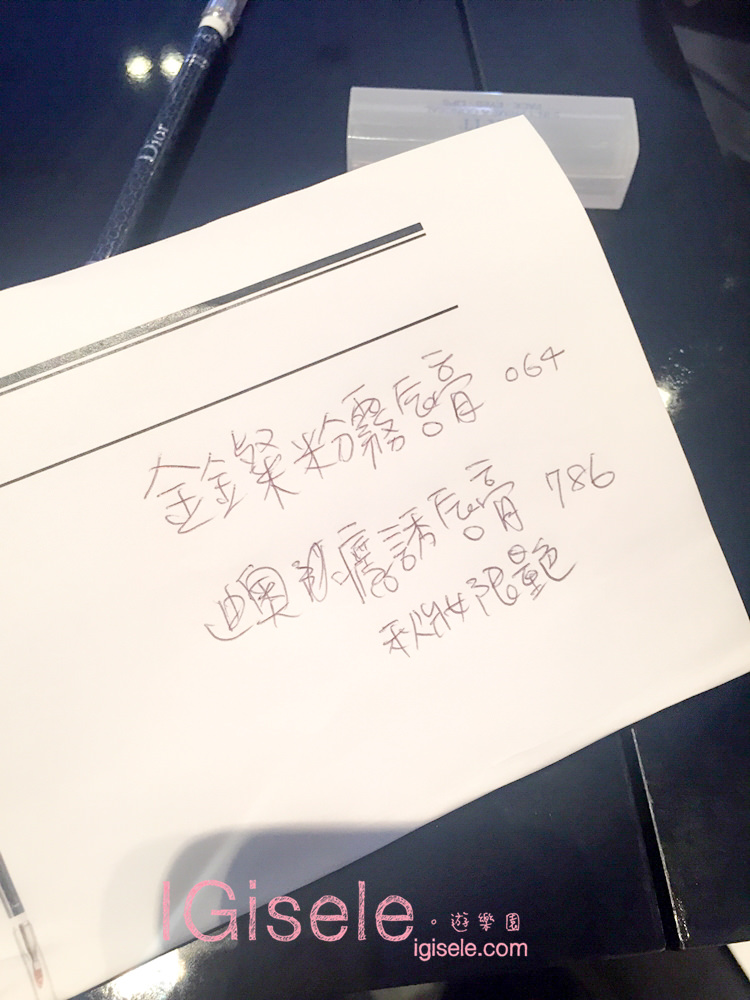 Dior
粉霧唇膏 064
迪奧癮誘唇膏 786
秋妝限量色
IGisele。遊樂園
igisele.com